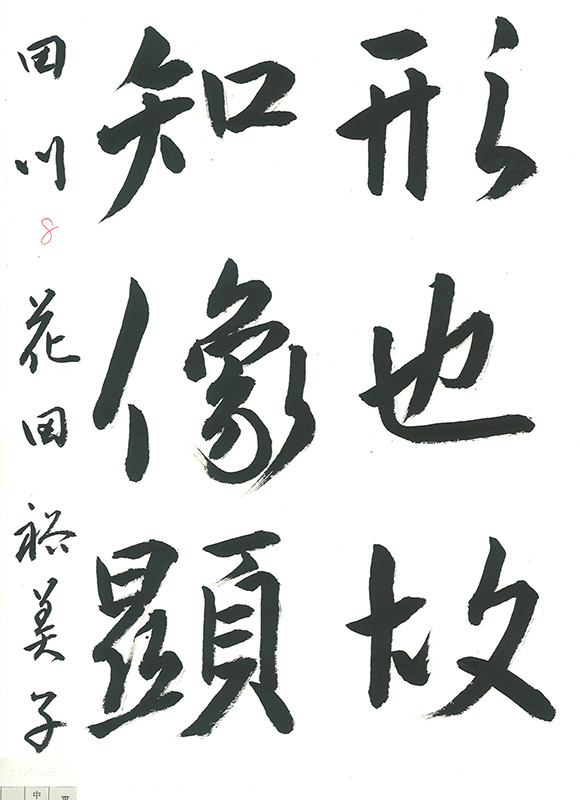 形也故
知像顕
田川 8 花田裕美子
中